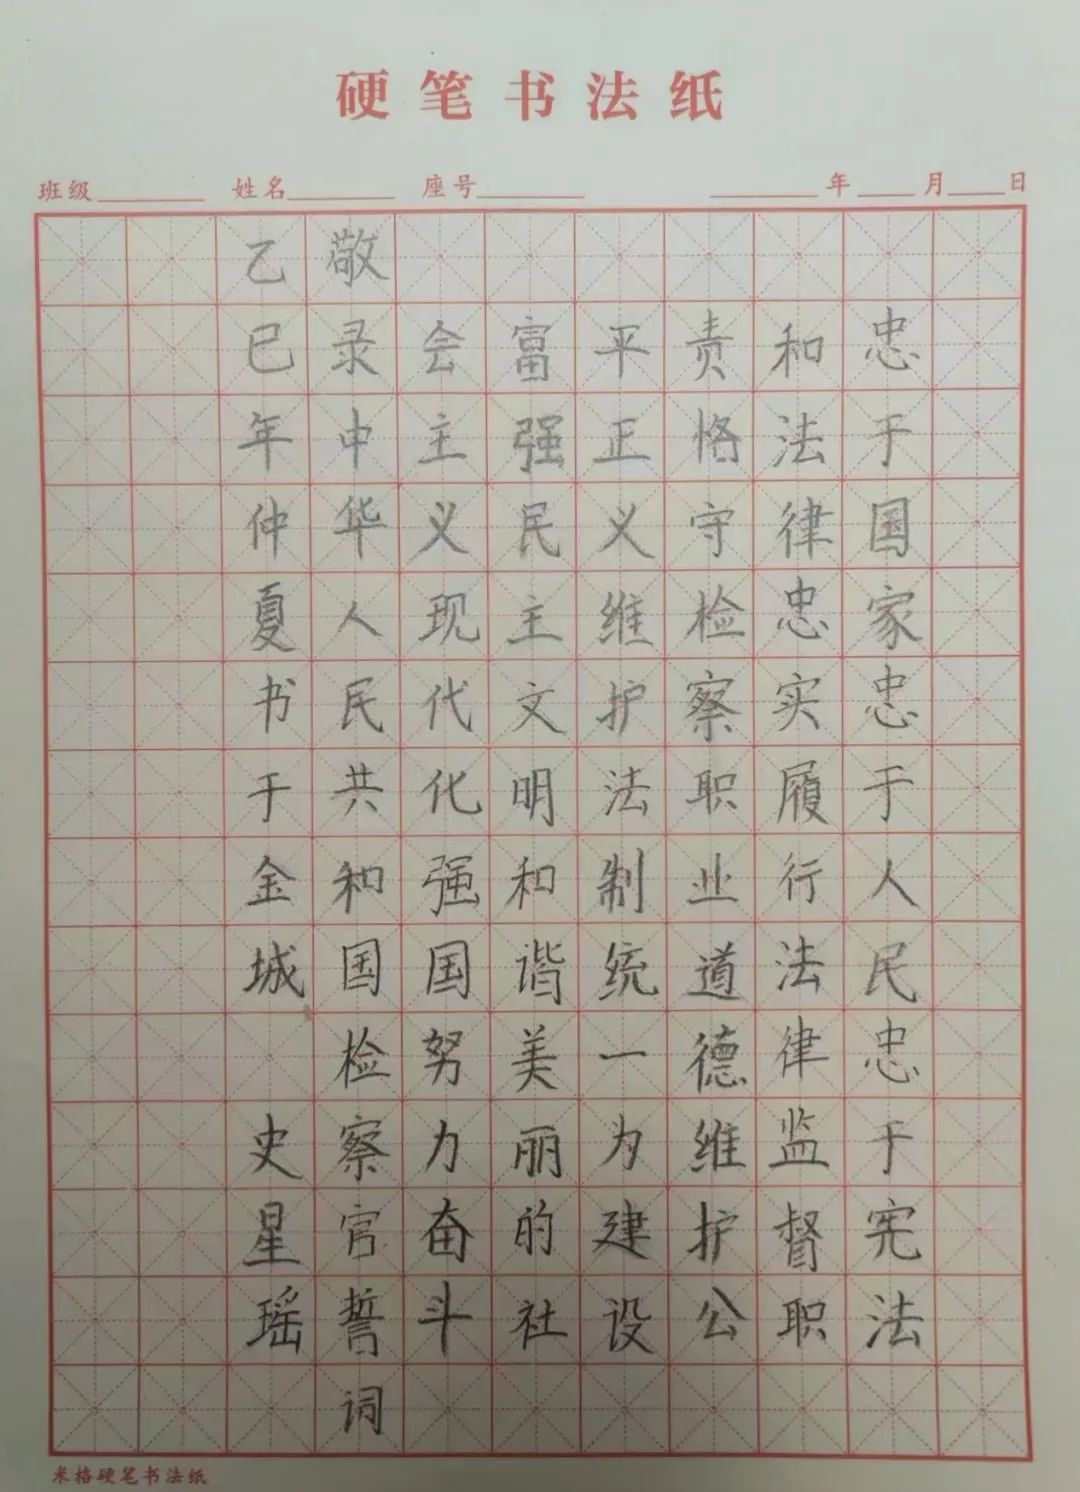 硬笔书法纸
班级 姓名 座号 年 月 日
忠于国家忠于人民忠于宪法
和法律忠实履行法律监督职
责恪守检察职业道德维护公
平正义维护法制统一为建设
富强民主文明和谐美丽的社
会主义现代化强国努力奋斗
敬录中华人民共和国检察官誓词
乙巳年仲夏书于金城 史星瑶
米格硬笔书法纸